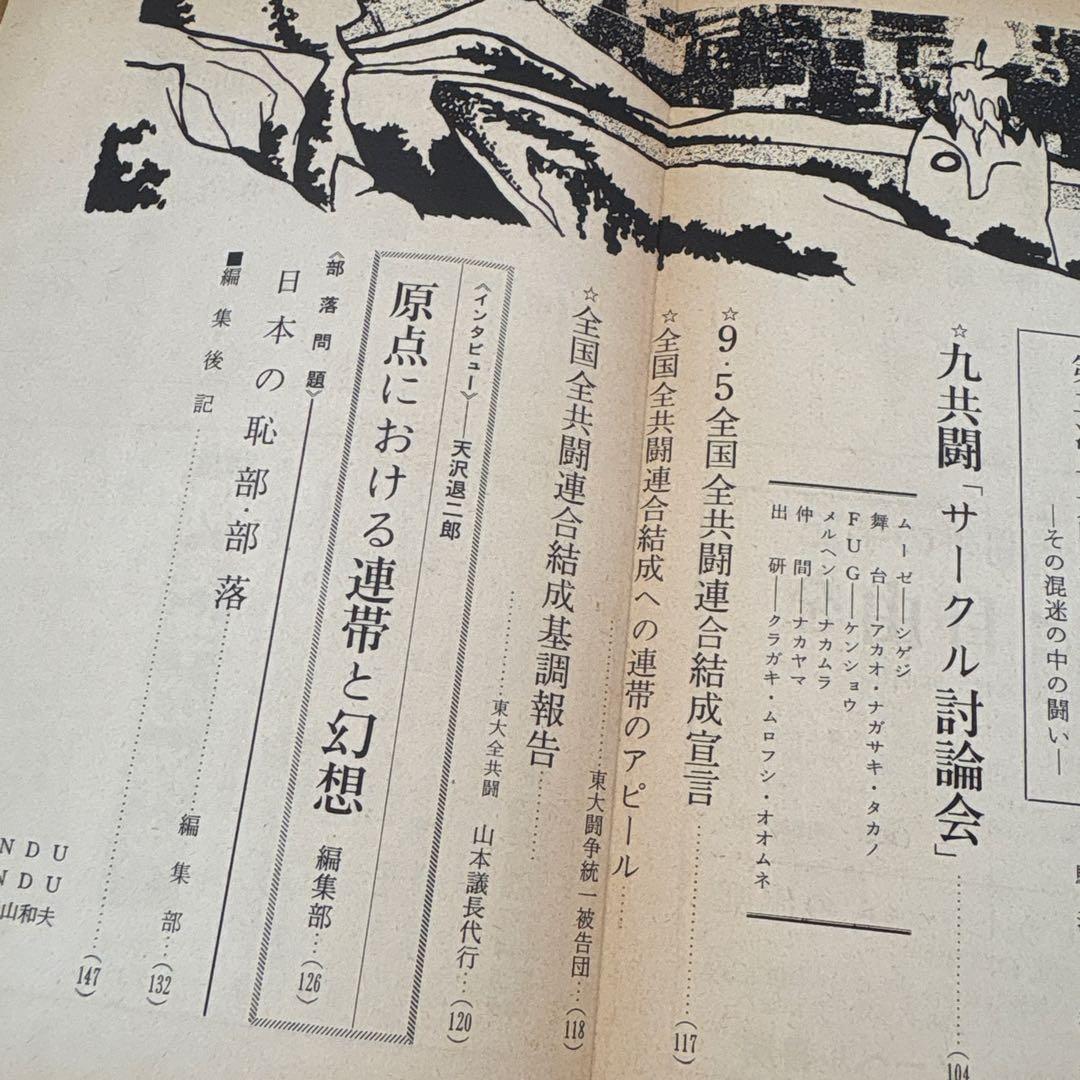 ―その混迷の中の闘い―
☆九共闘「サークル討論会」……(104
ムーゼ――シゲジ
舞台――アカオ・ナガサキ・タカノ
FUG――ケンショウ
メルヘン――ナカムラ
仲間――ナカヤマ
出研――クラガキ・ムロフシ・オオムネ
☆9・5全国全共闘連合結成宣言……(117)
☆全国全共闘連合結成への連帯のアピール……
……東大闘争統一被告団…(118)
☆全国全共闘連合結成基調報告……
……東大全共闘 山本議長代行…(120)
《インタビュー》――天沢退二郎
原点における連帯と幻想 編集部…(126)
《部落問題》
日本の恥部・部落……編集部…(132)
■編集後記……(147)
NDU
NDU
山和夫